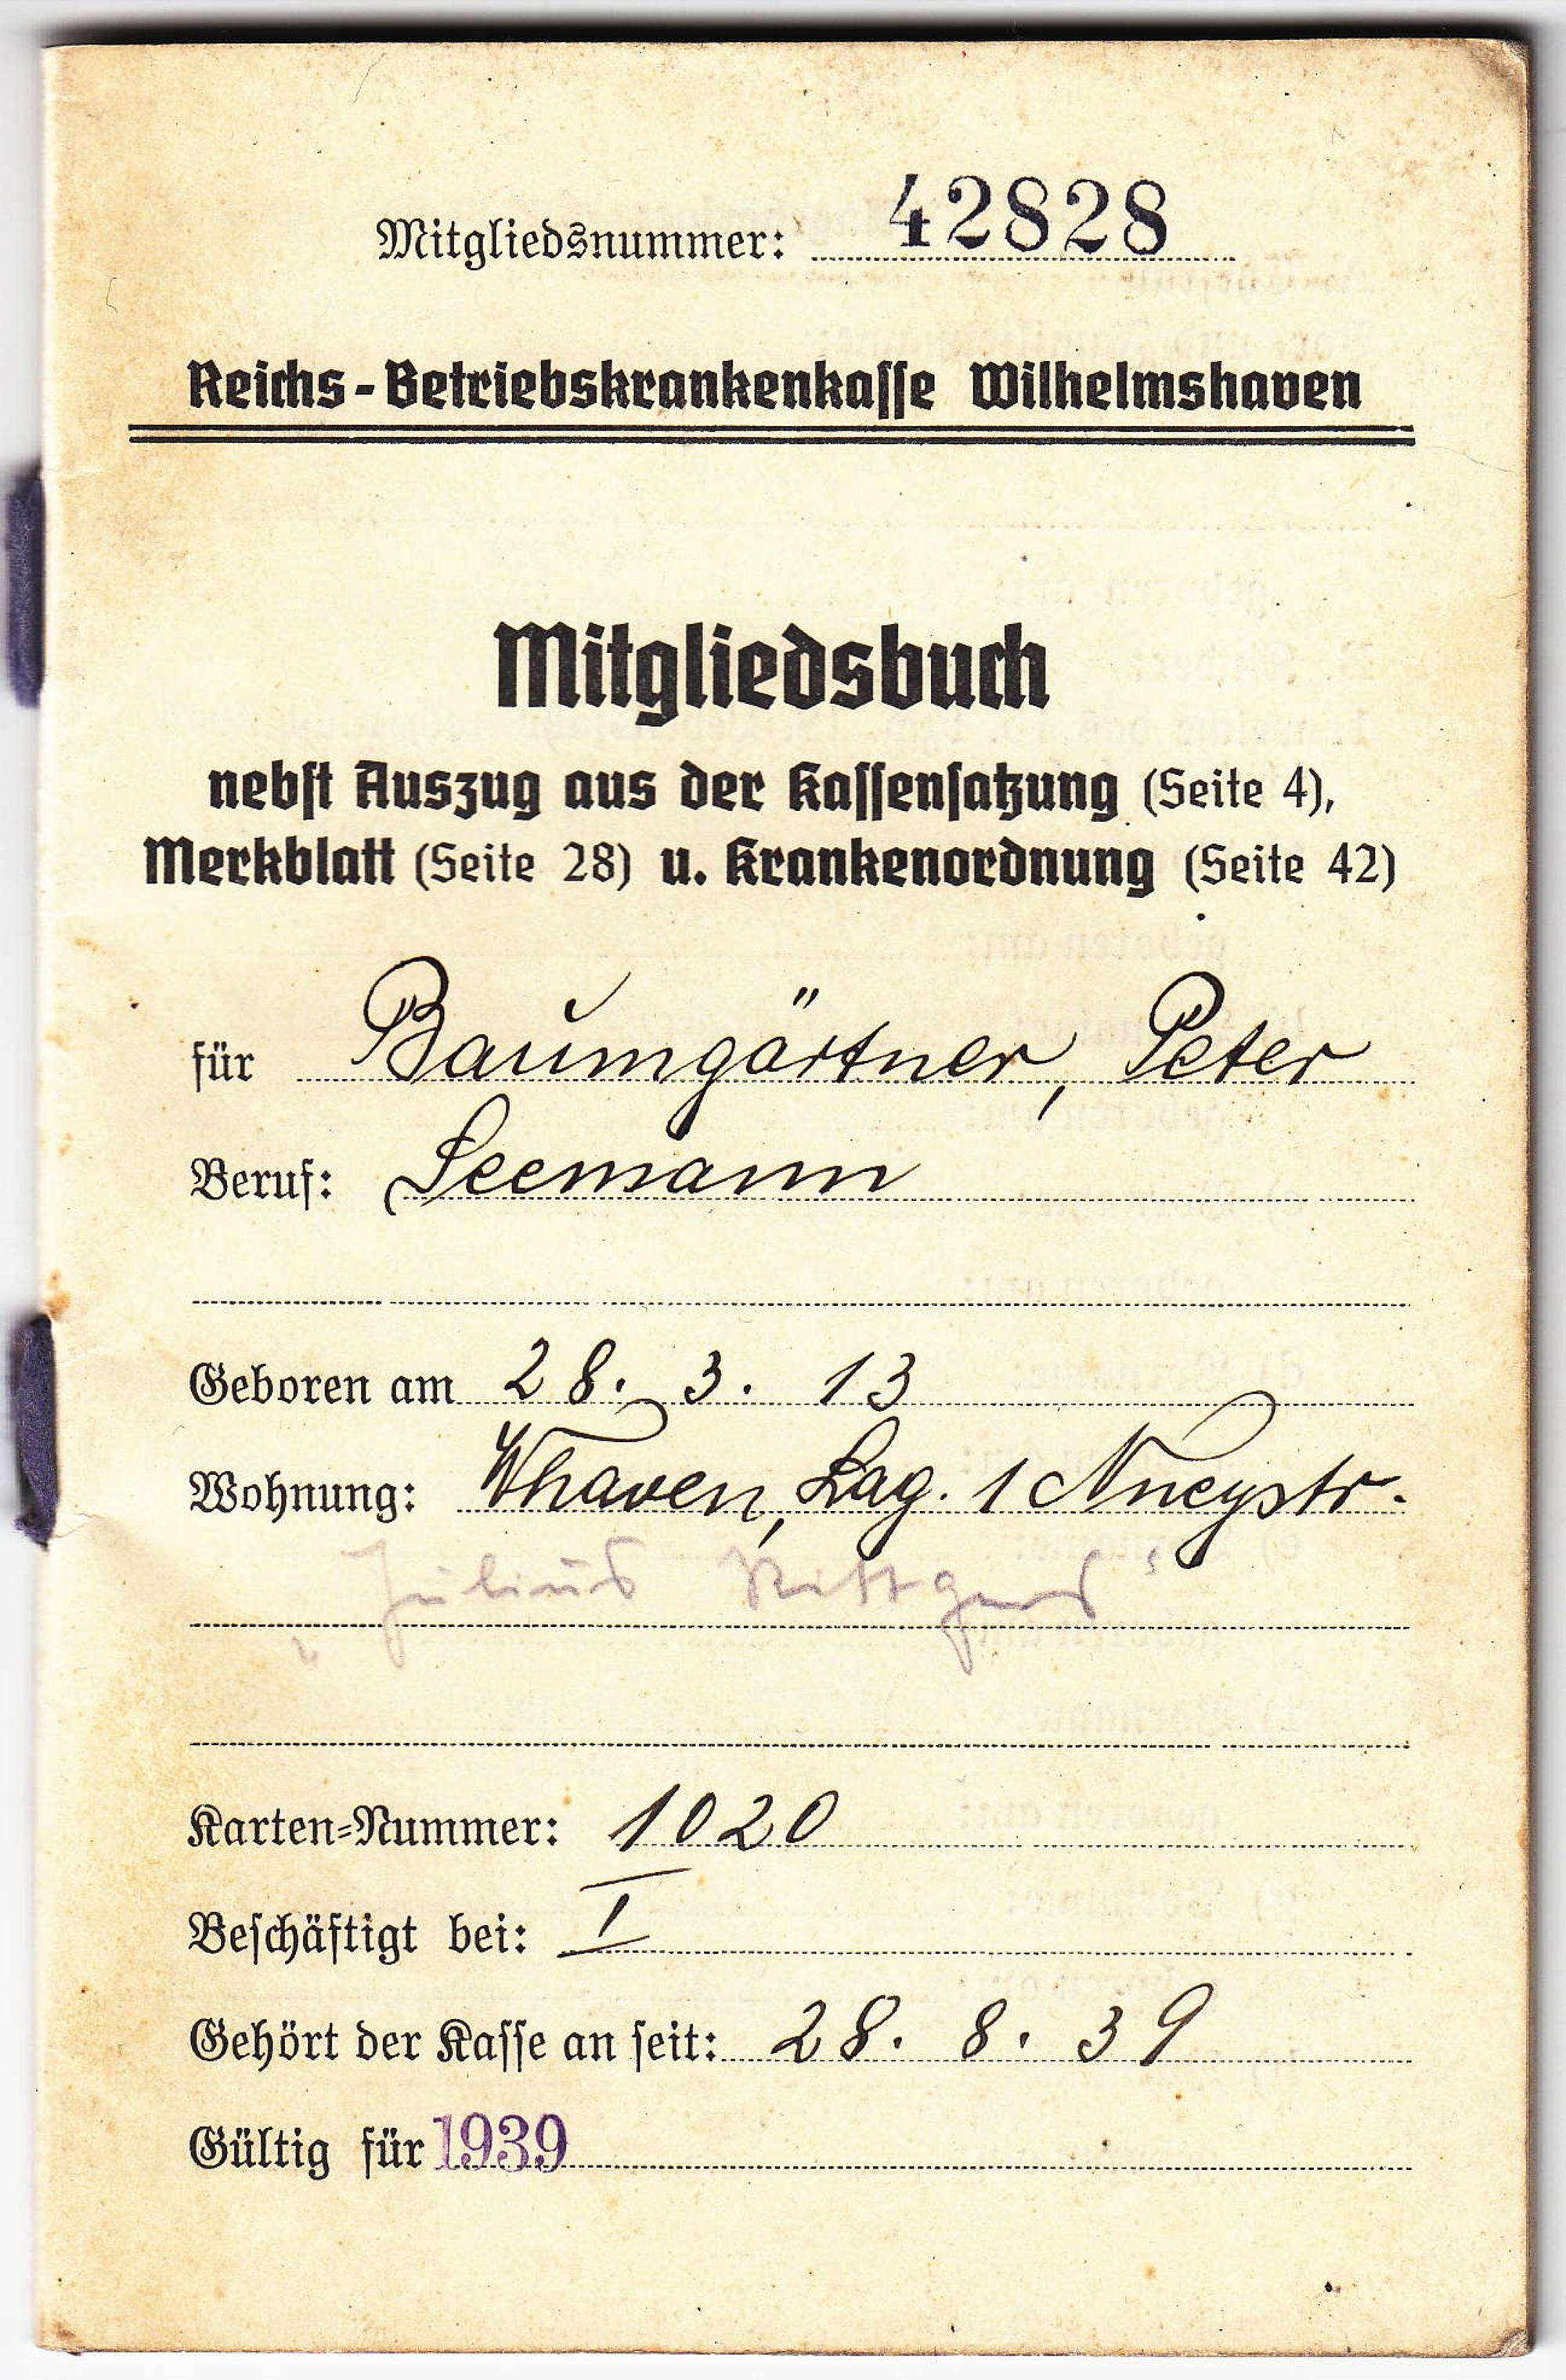 Mitgliedsnummer: 42828
Reichs-Betriebskrankenkasse Wilhelmshaven
Mitgliedsbuch
nebst Auszug aus der Kassensatzung (Seite 4),
Merkblatt (Seite 28) u. Krankenordnung (Seite 42)
für Baumgärtner, Peter
Beruf: Seemann
Geboren am 28. 3. 13
Wohnung: Whaven, Lag. 1
„Julius
Karten-Nummer: 1020
Beschäftigt bei: I
Gehört der Kasse an seit: 28. 8. 39
Gültig für 1939